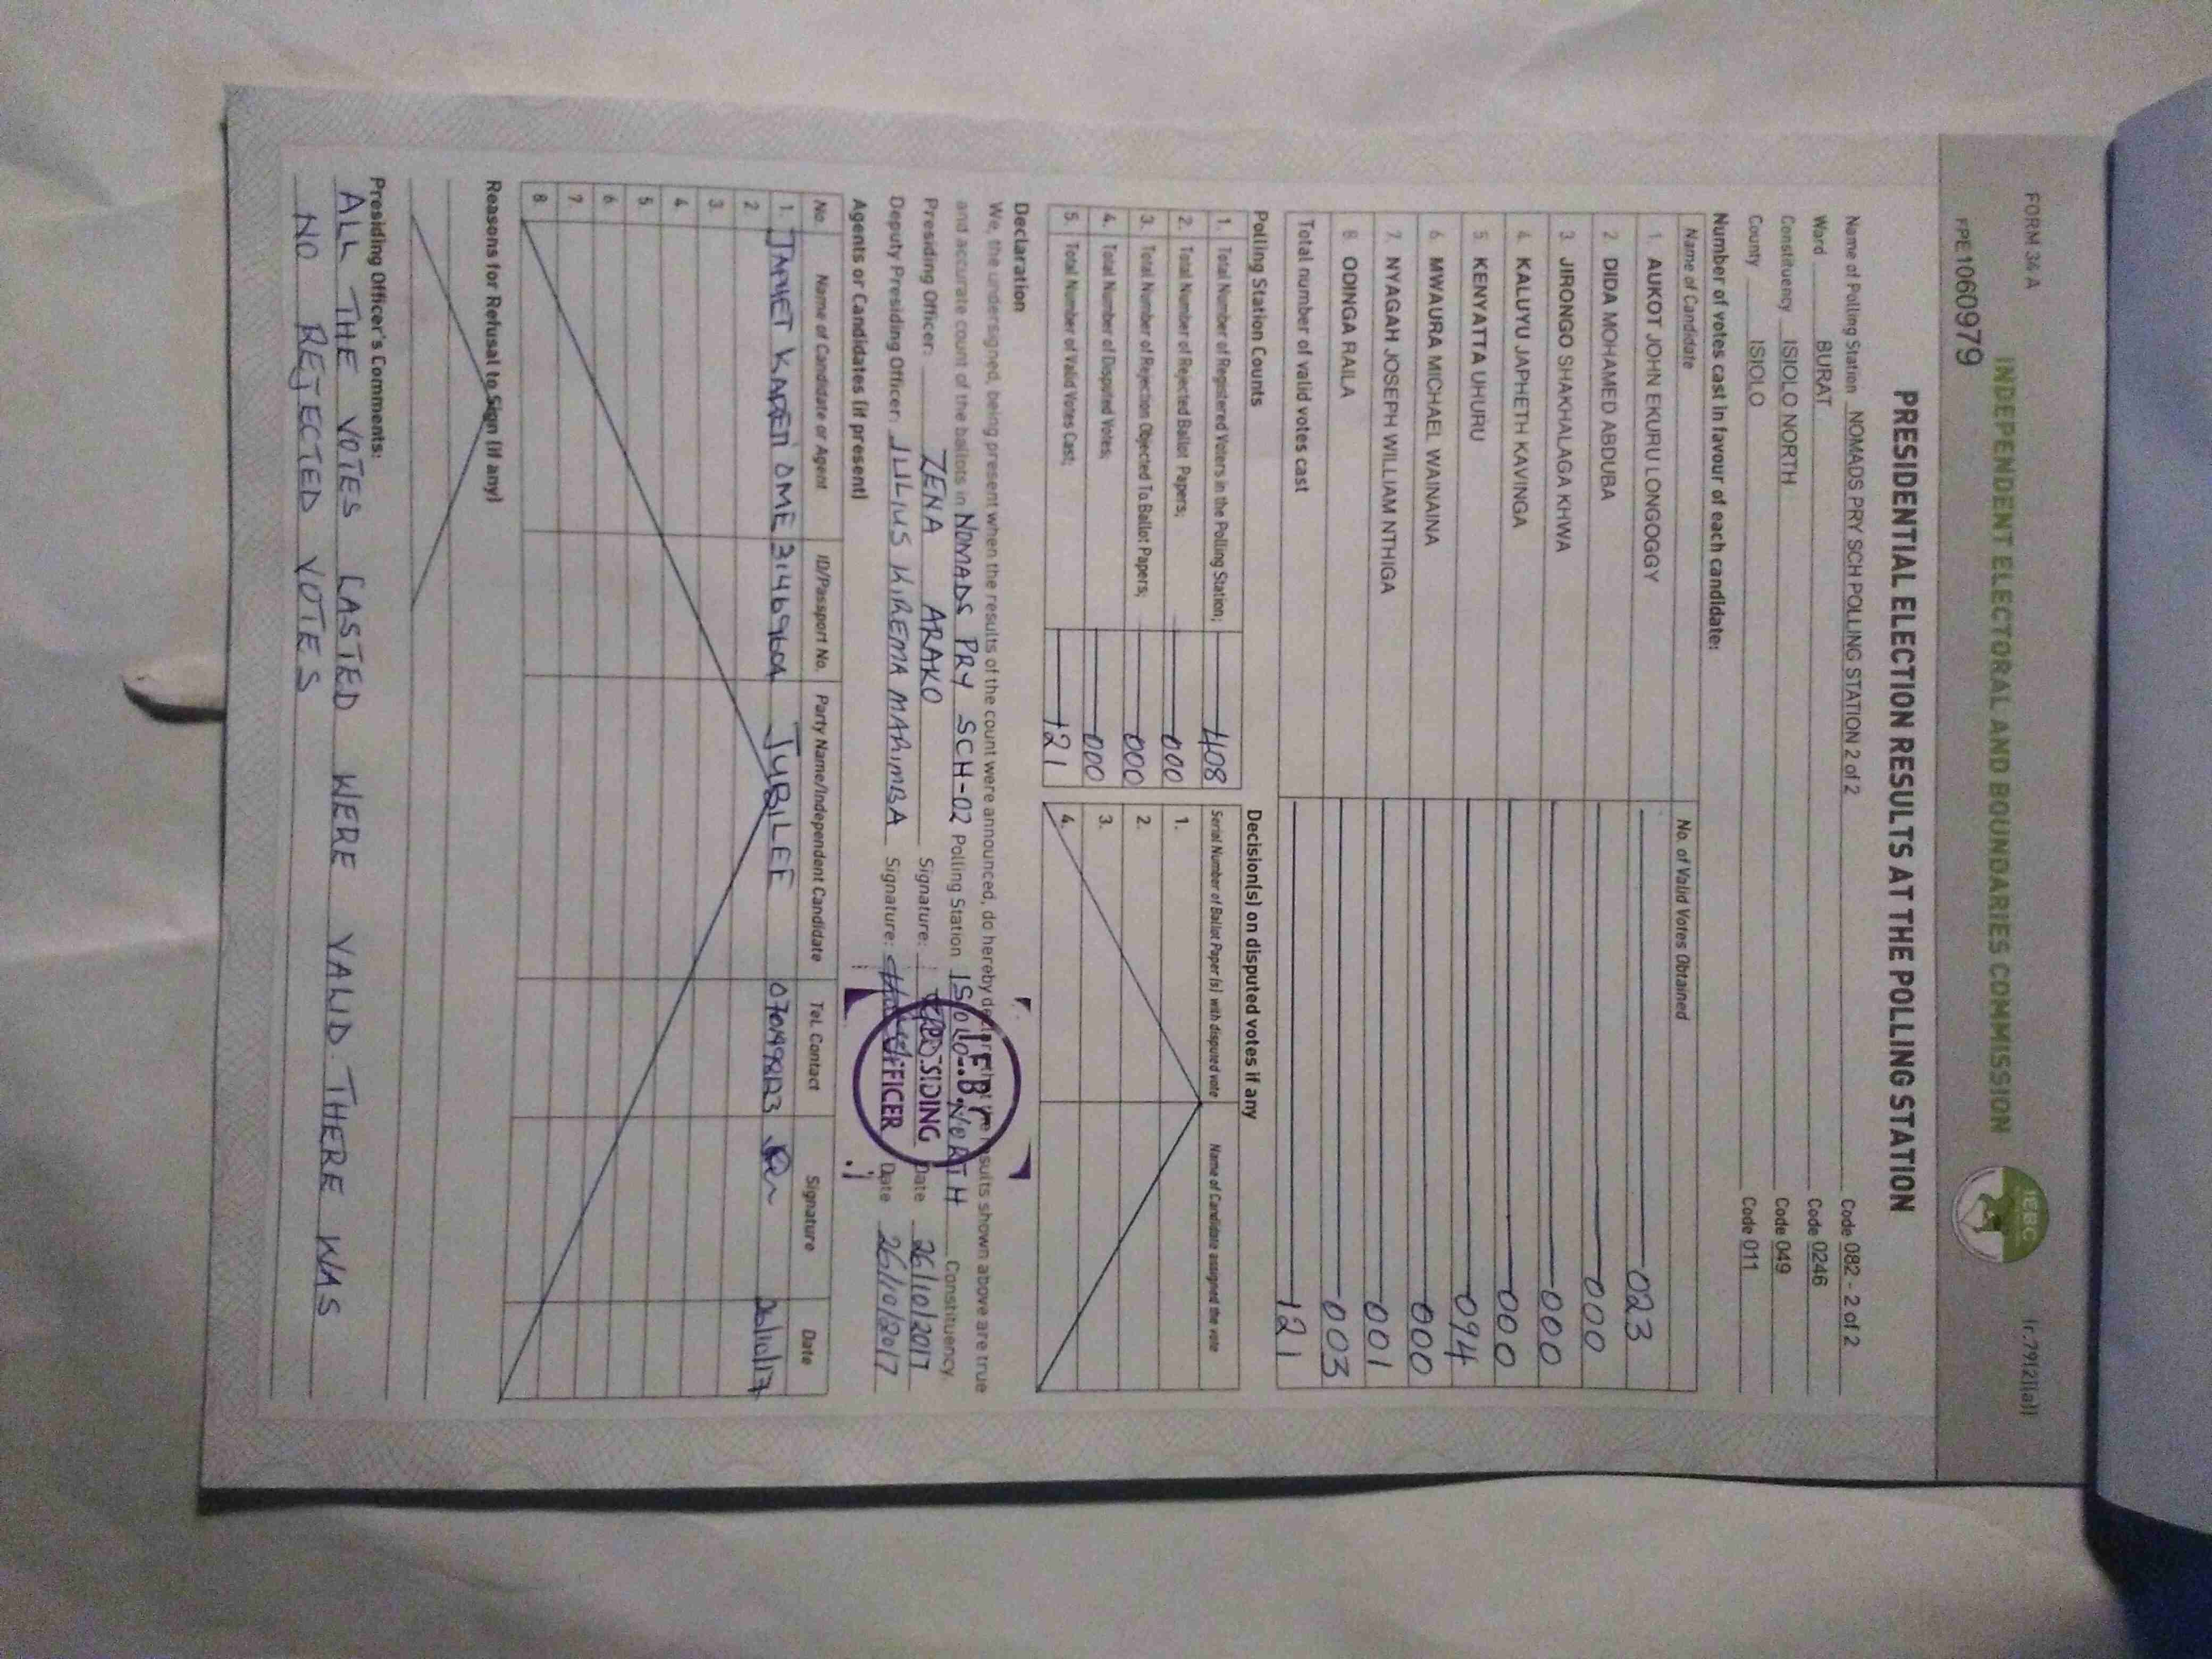 FORM 34A
INDEPENDENT ELECTORAL AND BOUNDARIES COMMISSION
IEBC
(r.79(2)(a))
FPE1060979
PRESIDENTIAL ELECTION RESULTS AT THE POLLING STATION
Name of Polling Station NOMADS PRY SCH POLLING STATION 2 of 2 Code 082 - 2 of 2
Ward BURAT Code 0246
Constituency ISIOLO NORTH Code 049
County ISIOLO Code 011
Number of votes cast in favour of each candidate:
Name of Candidate No. of Valid Votes Obtained
1. AUKOT JOHN EKURU LONGOGGY 023
2. DIDA MOHAMED ABDUBA 000
3. JIRONGO SHAKHALAGA KHWA 000
4. KALUYU JAPHETH KAVINGA 000
5. KENYATTA UHURU 094
6. MWAURA MICHAEL WAINAINA 000
7. NYAGAH JOSEPH WILLIAM NTHIGA 001
8. ODINGA RAILA 003
Total number of valid votes cast 121
Polling Station Counts Decision(s) on disputed votes if any
1. Total Number of Registered Voters in the Polling Station; 408 Serial Number of Ballot Paper (s) with disputed vote Name of Candidate assigned the vote
2. Total Number of Rejected Ballot Papers; 000 1.
3. Total Number of Rejection Objected To Ballot Papers; 000 2.
4. Total Number of Disputed Votes; 000 3.
5. Total Number of Valid Votes Cast; 121 4.
Declaration
We, the undersigned, being present when the results of the count were announced, do hereby declare that the results shown above are true
and accurate count of the ballots in NOMADS PRY SCH-02 Polling Station ISIOLO NORTH Constituency.
Presiding Officer: ZENA ARAKO Signature: Date 26/10/2017
Deputy Presiding Officer: JULIUS KIREMA MARIMBA Signature: Date 26/10/2017
PRESIDING
OFFICER
Agents or Candidates (if present)
No. Name of Candidate or Agent ID/Passport No. Party Name/Independent Candidate Tel. Contact Signature Date
1. JAPHET OME JUBILEE 26/10/17
2.
3.
4.
5
6
7
8
Reasons for Refusal to Sign (if any)
Presiding Officer's Comments:
ALL THE VOTES CASTED WERE VALID. THERE WAS
NO REJECTED VOTES